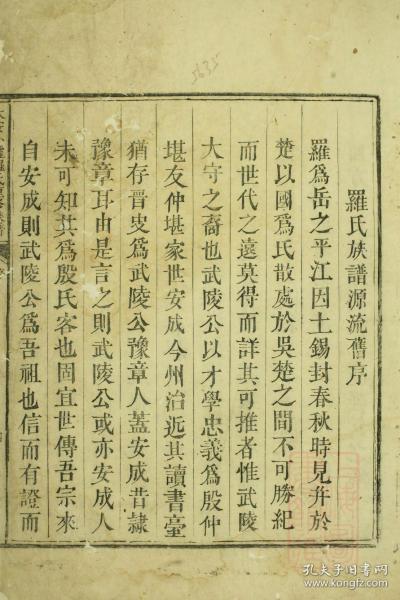 羅氏族譜源流舊序
羅爲岳之平江因土錫封春秋時見并於
楚以國爲氏散處於吳楚之間不可勝紀
而世代之遠莫得而詳其可推者惟武陵
大守之裔也武陵公以才學忠義爲殷仲
堪友仲堪家世安成今州治近其讀書臺
猶存晉史爲武陵公豫章人蓋安成昔隸
豫章耳由是言之則武陵公或亦安成人
未可知其爲殷氏客也固宜世傳吾宗來
自安成則武陵公爲吾祖也信而有證而
5635
孔夫子旧书网
www.kongfz.com